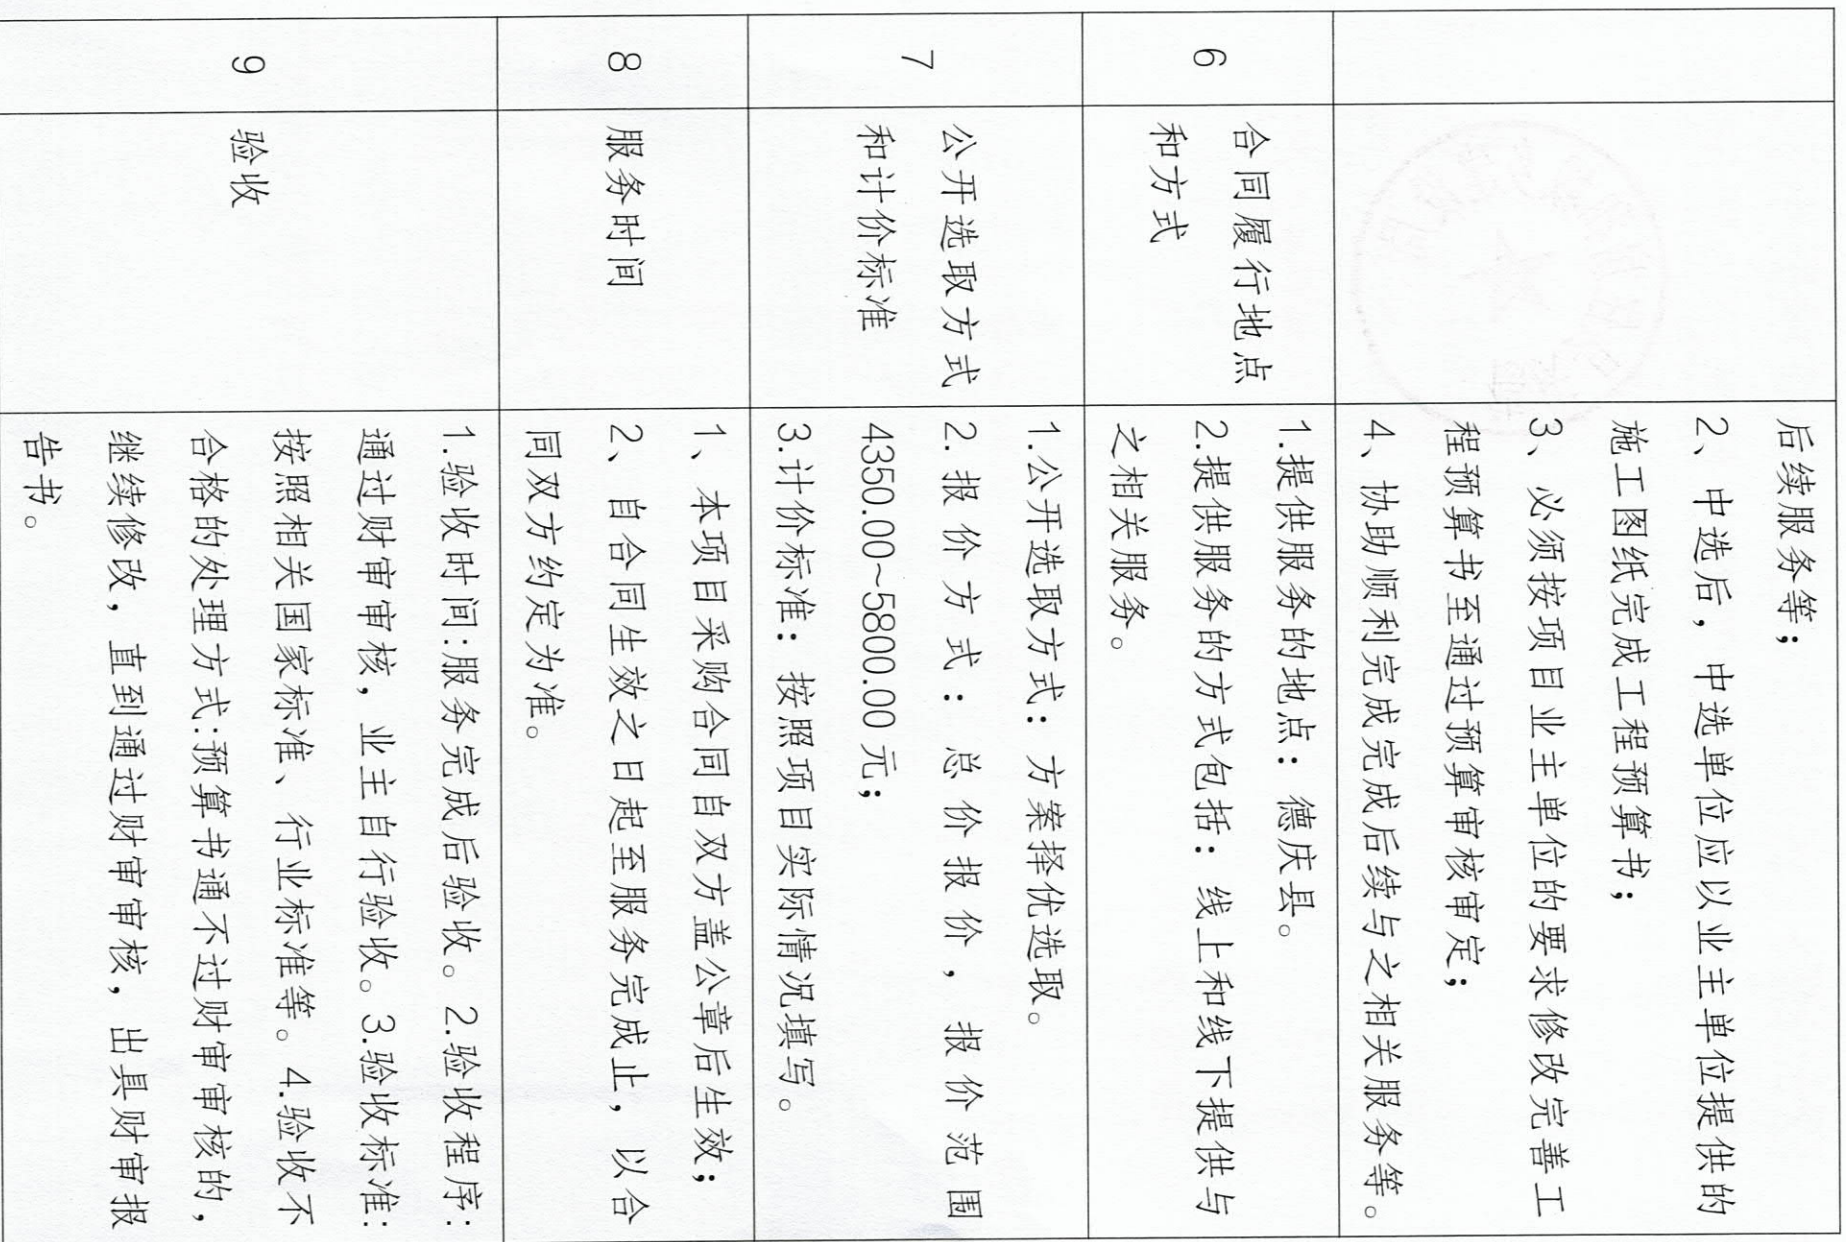 后续服务等；
2、中选后，中选单位应以业主单位提供的
施工图纸完成工程预算书；
3、必须按项目业主单位的要求修改完善工
程预算书至通过预算审核审定；
4、协助顺利完成完成后续与之相关服务等。
6
合同履行地点
和方式
1.提供服务的地点：德庆县。
2.提供服务的方式包括：线上和线下提供与
之相关服务。
7
公开选取方式
和计价标准
1.公开选取方式：方案择优选取。
2.报价方式：总价报价，报价范围
4350.00~5800.00元；
3.计价标准：按照项目实际情况填写。
8
服务时间
1、本项目采购合同自双方盖公章后生效；
2、自合同生效之日起至服务完成止，以合
同双方约定为准。
9
验收
1.验收时间:服务完成后验收。2.验收程序:
通过财审审核，业主自行验收。3.验收标准:
按照相关国家标准、行业标准等。4.验收不
合格的处理方式:预算书通不过财审审核的，
继续修改，直到通过财审审核，出具财审报
告书。